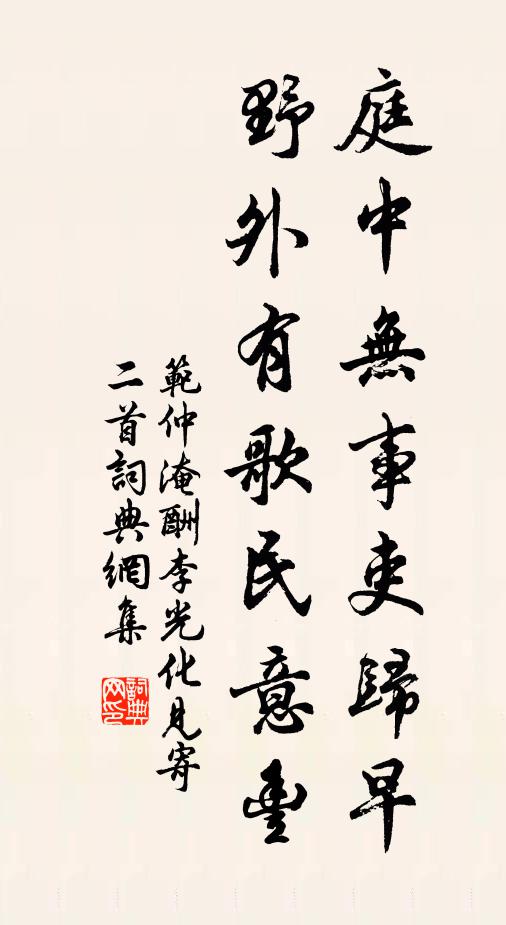 庭中無事吏歸早
野外有歌民意豊
範仲淹酬李光化見寄
二首詞典網集
詞典
网印